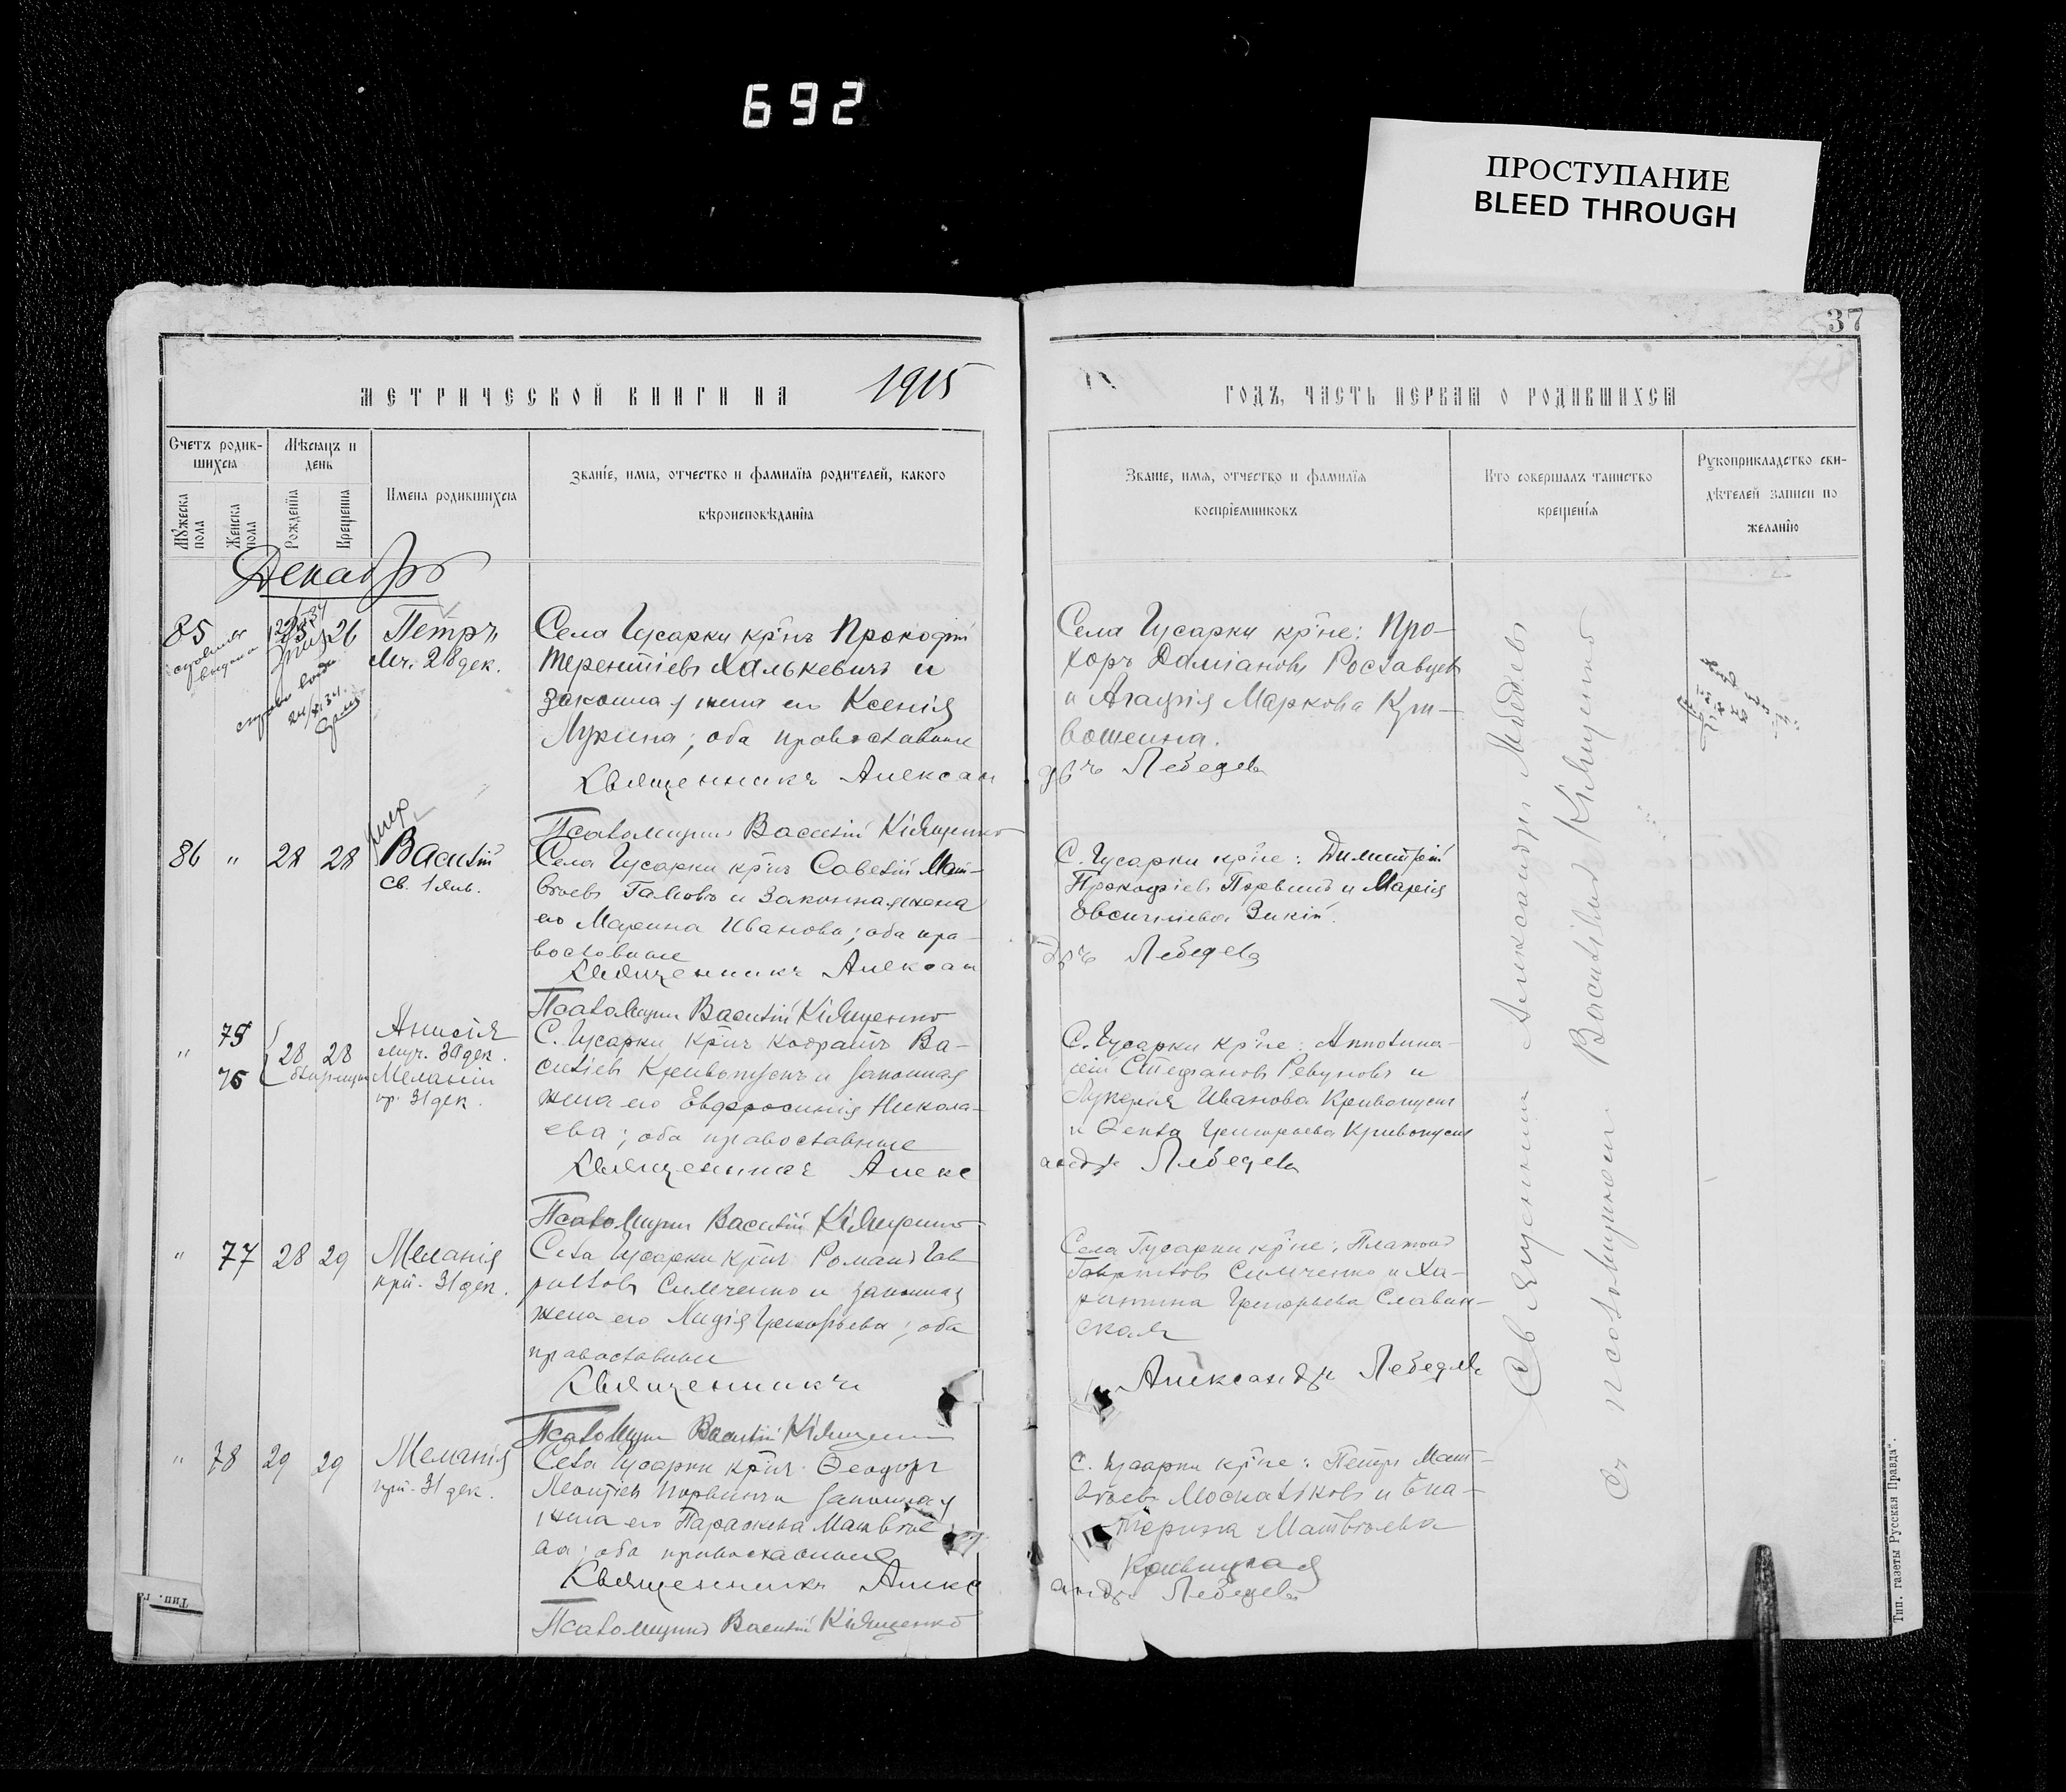 692
ПРОСТУПАНИЕ
BLEED THROUGH
37
МЕТРИЧЕСКОЙ КНИГИ НА 1915
ГОДЪ, ЧАСТЬ ПЕРВАЯ О РОДИВШИХСЯ
Счетъ родив-
шихся
Мужеска пола
Женска пола
Мѣсяцъ и
день
Рожденїя
Крещенїя
Имена родившихся
Званїе, имя, отчество и фамилїя родителей, какого
вѣроисповѣданїя
Званїе, имя, отчество и фамилїя
воспрїемниковъ
Кто совершалъ таинство
крещенїя
Рукоприкладство сви-
дѣтелей записи по
желанїю
Декабрь
85
26
Петръ
мч. 28 дек.
Села Гусарки кр-нъ Прокофій
Терентіевъ Халькевичъ и
законная жена его Ксенія
Лукина; оба православные
Священникъ Алексан
Псаломщикъ Василій Кіященко
Села Гусарки кр-не: Про-
хоръ Даміановъ Рославцевъ
и Агафія Маркова Кри-
вошеина.
дръ Лебедевъ
86 " 28 28
Василій
св. 1 янв.
Села Гусарки кр-нъ Савелій Мат-
вѣевъ Галовъ и законная жена
его Марина Иванова; оба пра-
вославные
Священникъ Алексан
Псаломщикъ Василій Кіященко
С. Гусарки кр-не: Димитрій
Прокофіевъ Первый и Марія
Евсигніева Зикій.
дръ Лебедевъ
" 75
76
28 28
Анисія
муч. 30 дек.
Меланія
пр. 31 дек.
С. Гусарки кр-нъ Кодратъ Ва-
силіевъ Кривопускъ и законная
жена его Евфросинія Никола-
ева; оба православные
Священникъ Алекс
Псаломщикъ Василій Кіященко
С. Гусарки кр-не: Аполлина-
рій Стефановъ Ревуновъ и
Лукерія Иванова Кривопускъ
и Ѳекла Григорьева Кривопускъ
андръ Лебедевъ
" 77 28 29
Меланія
прп. 31 дек.
Села Гусарки кр-нъ Романъ Гав
риловъ Симченко и законная
жена его Лидія Григорьева; оба
православные
Священникъ
Псаломщикъ Василій Кіященко
Села Гусарки кр-не: Платонъ
Гавриловъ Симченко и Ха-
ритина Григорьева Славин-
ская
Александръ Лебедевъ
" 78 29 29
Меланія
прп. 31 дек.
Села Гусарки кр-нъ Ѳеодоръ
Леонтіевъ законная
жена его Параскева Матвѣе
ва; оба православные
Священникъ Алекс
Псаломщикъ Василій Кіященко
С. Гусарки кр-не: Петръ Мат-
вѣевъ Москальковъ и Ека-
терина Матвѣева
андръ Лебедевъ
Священникъ Александръ Лебедевъ
съ псаломщикомъ Василіемъ Кіященко
Тип. газеты Русская Правда".
Тип. га